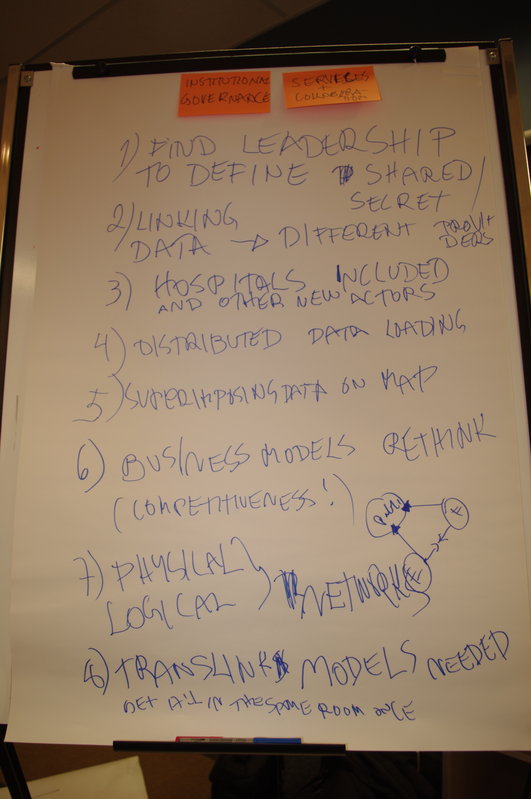 INSTITUTIONAL
GOVERNANCE
SERVICES
+
1) FIND LEADERSHIP
TO DEFINE SHARED/
SECRET
2) LINKING
DATA → DIFFERENT PROVI
DERS
3) HOSPITALS INCLUDED
AND OTHER NEW ACTORS
4) DISTRIBUTED DATA LOADING
5) SUPERIMPOSING DATA ON MAP
6) BUSINESS MODELS RETHINK
(COMPETITIVENESS!)
7) PHYSICAL
LOGICAL } NETWORKS
8) TRANSLINK MODELS NEEDED
GET IN THE SAME ROOM ONCE